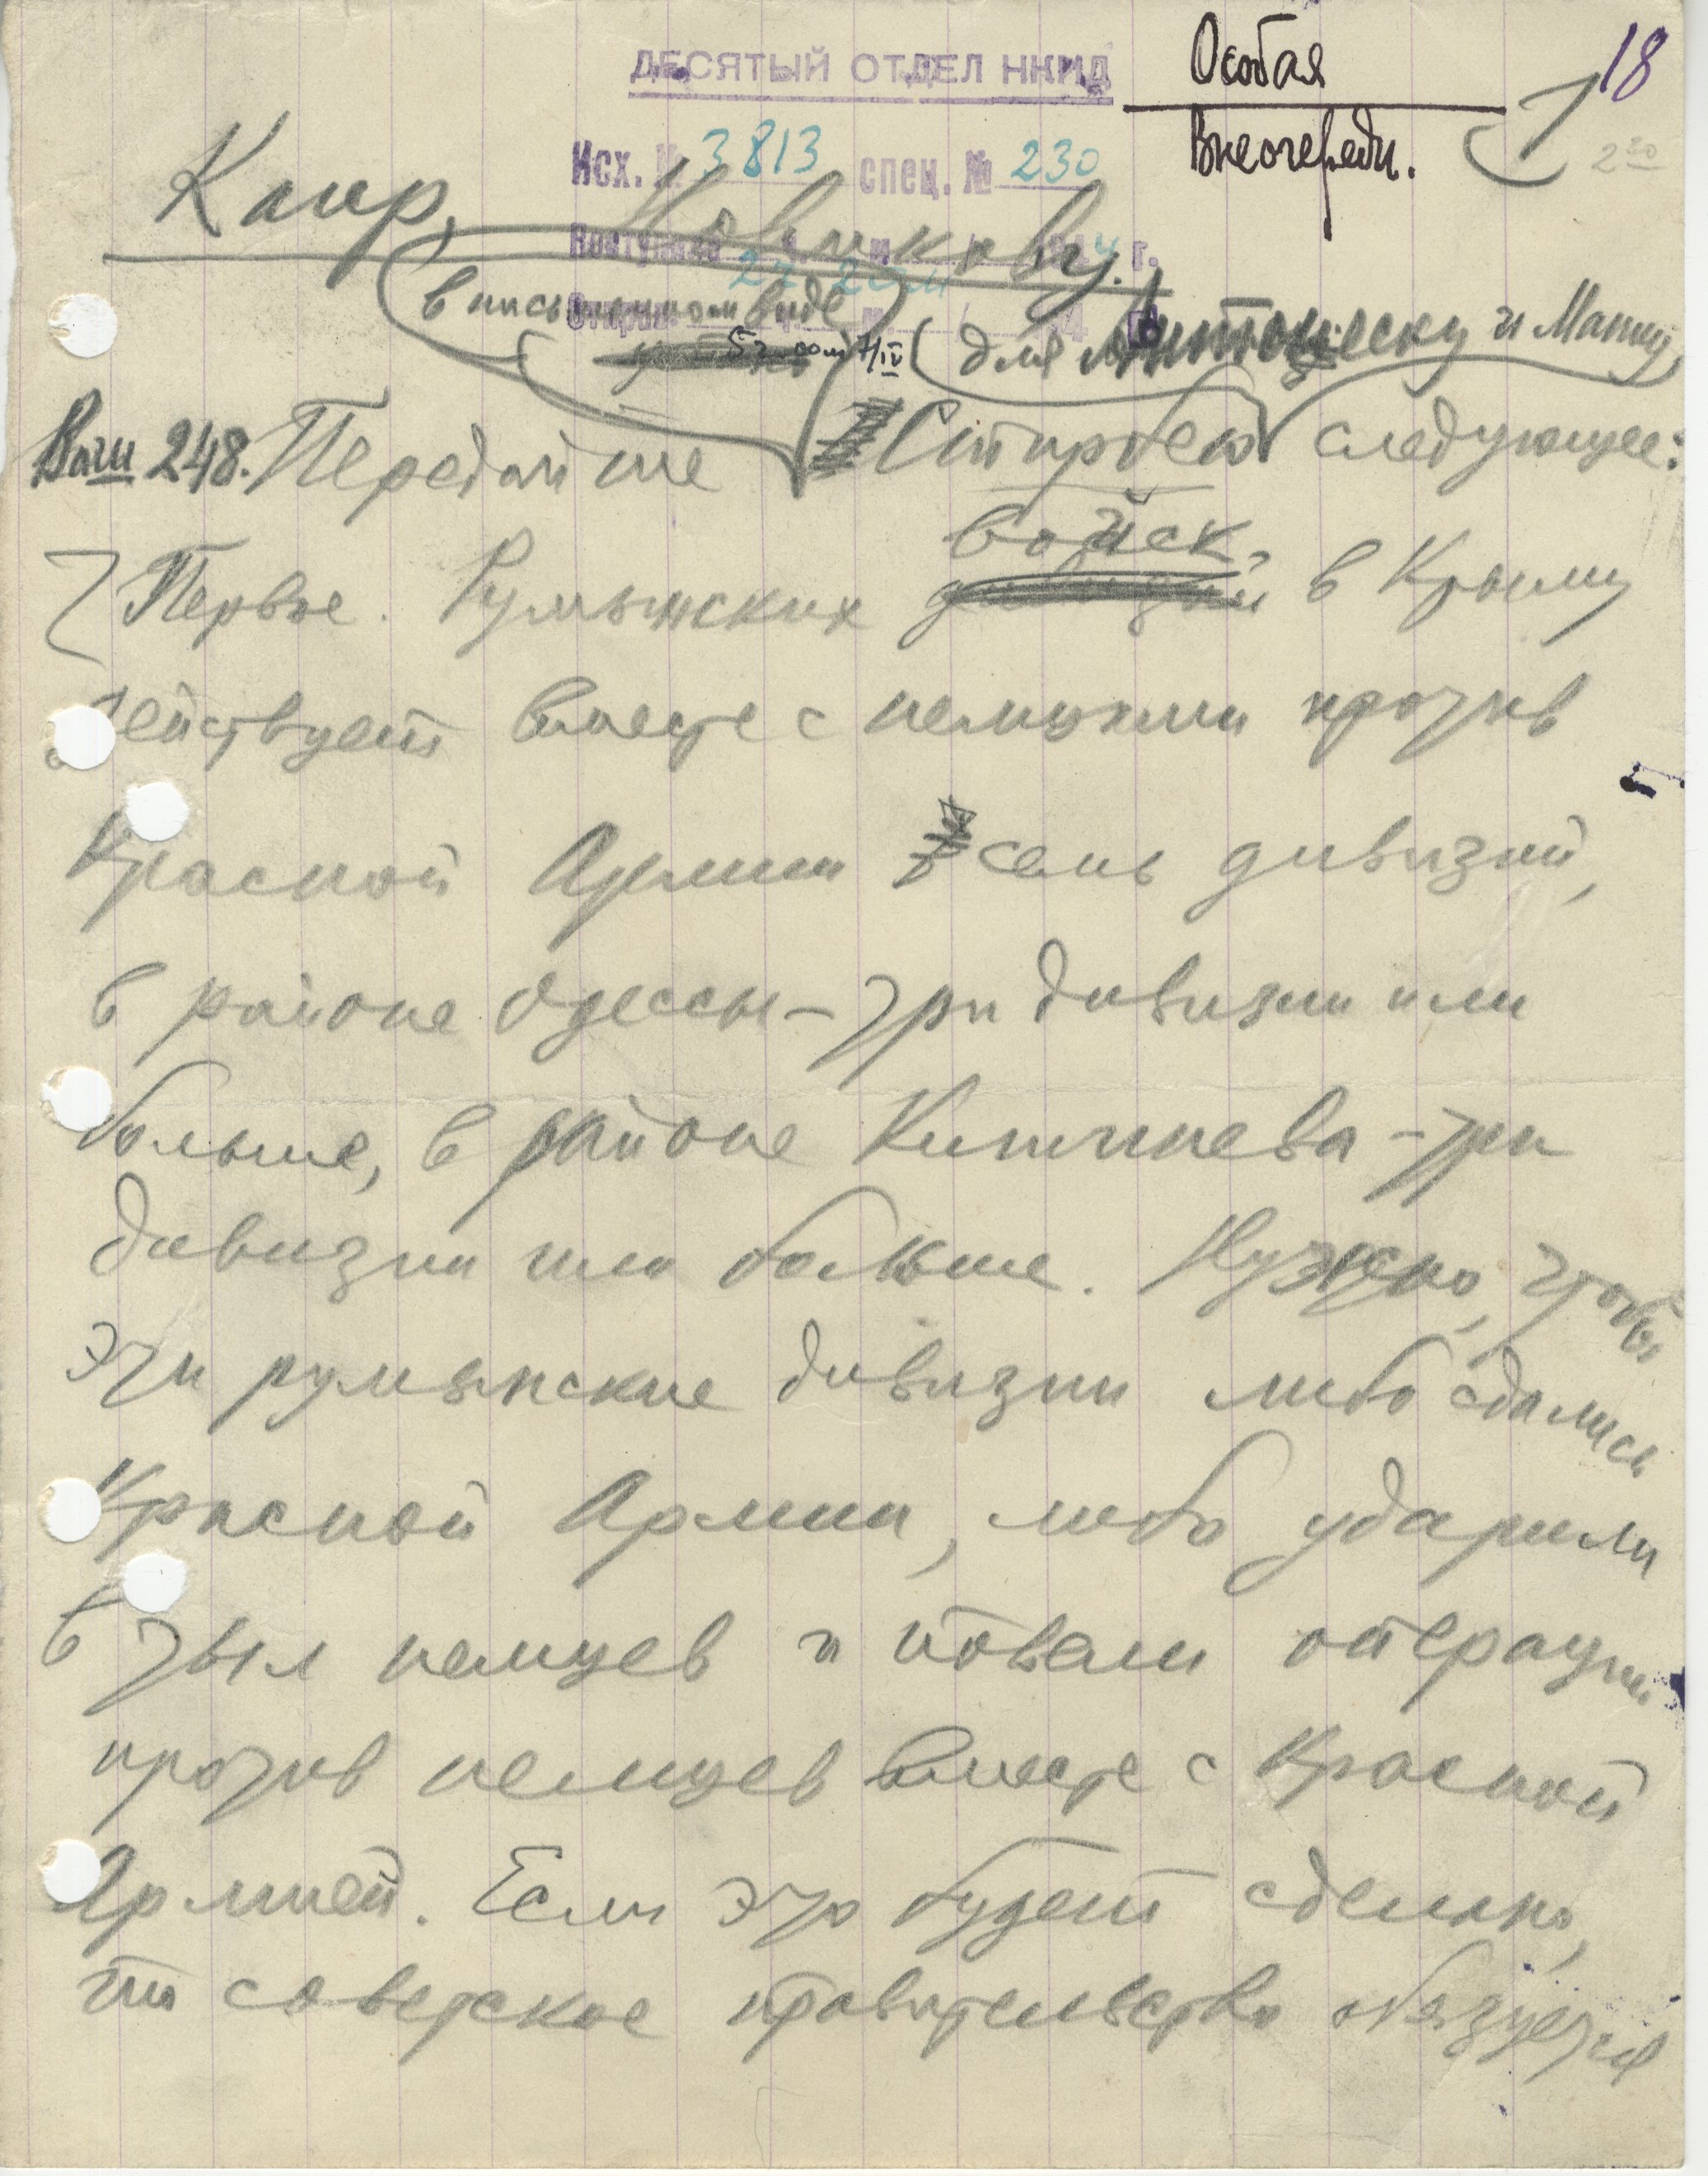 ДЕСЯТЫЙ ОТДЕЛ НКИД
Особая
Внеочереди.
18
1
Исх. № 3813 спец. № 230
Каир, Новикову.
Поступило ч. м. 4 г.
27 2 ч м
Отправ. ч. м.
в письменном виде
5 ч. 00 м 7/IV
для Антонеску и Маниу,
Ваш 248. Передайте Стирбею следующее:
Первое. Румынских войск, в Крыму
действует вместе с немцами против
Красной Армии семь дивизий,
в районе Одессы – три дивизии или
больше, в районе Кишинева – три
дивизии или больше. Нужно, чтобы
эти румынские дивизии либо сдались
Красной Армии, либо ударили
в тыл немцев и повели операции
против немцев вместе с Красной
Армией. Если это будет сделано,
то советское правительство обязуется